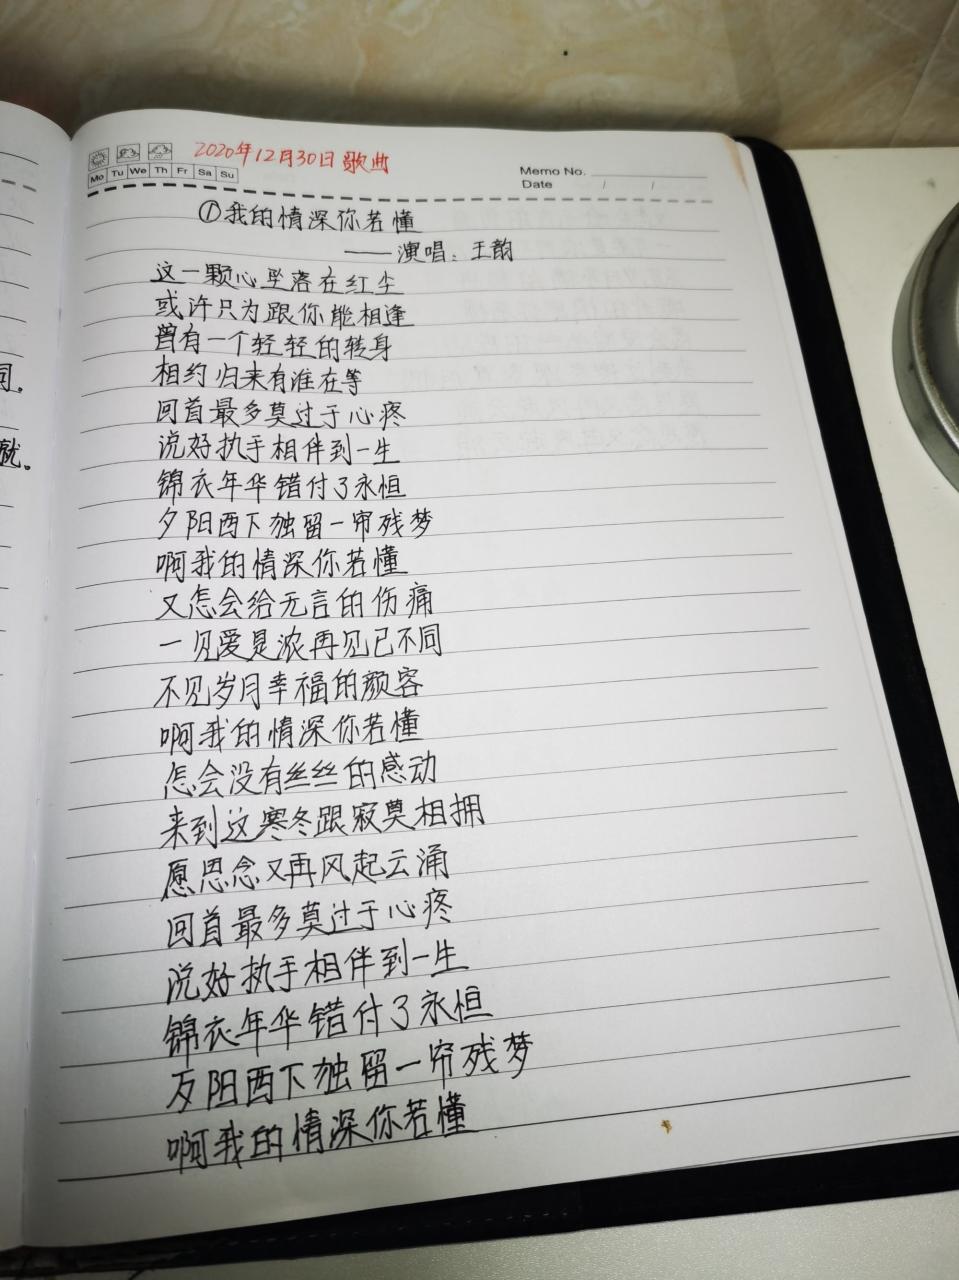 2020年12月30日歌曲
Memo No.
Mo Tu We Th Fr Sa Su
Date / /
①我的情深你若懂
——演唱:王韵
这一颗心坠落在红尘
或许只为跟你能相逢
曾有一个轻轻的转身
相约归来有谁在等
回首最多莫过于心疼
说好执手相伴到一生
锦衣年华错付了永恒
夕阳西下独留一帘残梦
啊我的情深你若懂
又怎会给无言的伤痛
一见爱是浓再见已不同
不见岁月幸福的颜容
啊我的情深你若懂
怎会没有丝丝的感动
来到这寒冬跟寂寞相拥
愿思念又再风起云涌
回首最多莫过于心疼
说好执手相伴到一生
锦衣年华错付了永恒
阳西下独留一帘残梦
啊我的情深你若懂
就。